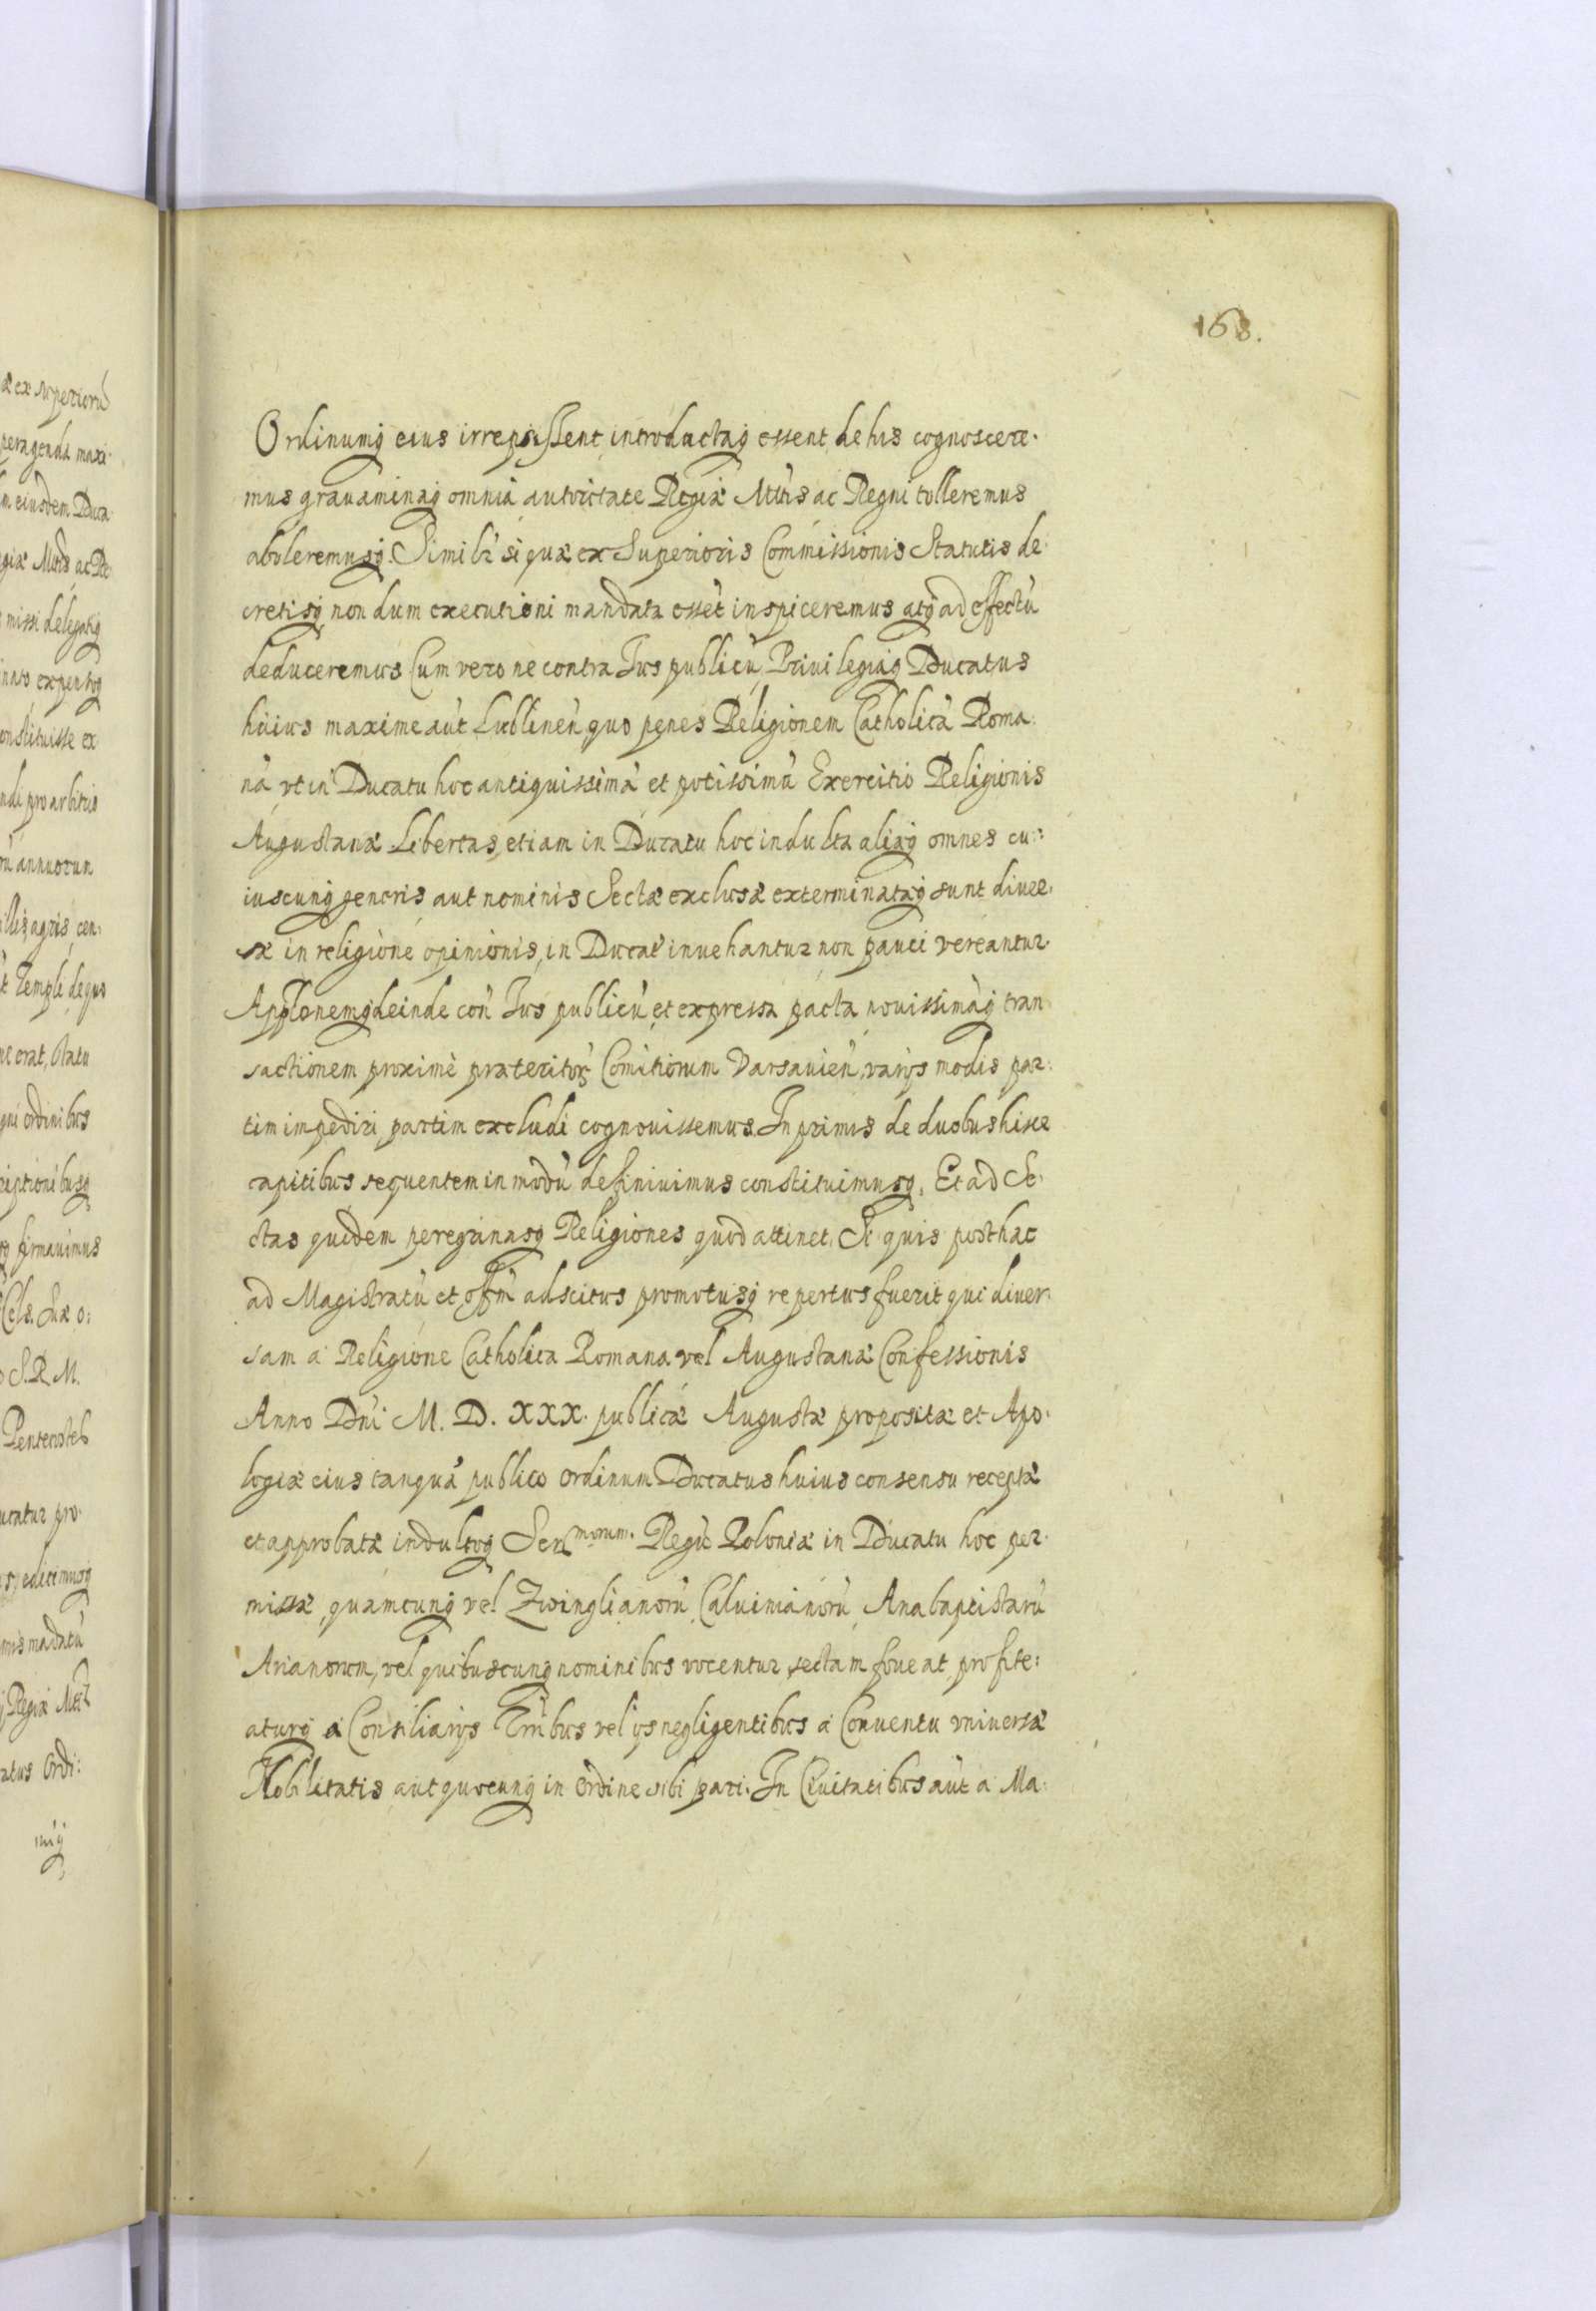 168.
Ordinumq; eius irrepsissent, introductaq; essent, de his cognoscere-
mus grauaminaq; omnia autoritate Regiæ Mttis ac Regni tolleremus
aboleremusq;. Similr si quæ ex Superioris Commissionis Statutis de-
cretisq; nondum executioni mandata essēt inspiceremus atq; ad effectū
deduceremus Cum vero ne contra Ius publicū, Priuilegiaq; Ducatus
huius maxime aūt Lublineñ quo penes Religionem Catholicā Roma-
nā, vt in Ducatu hoc antiquissimā et potissimū Exercitio Religionis
Augustanæ Libertas, etiam in Ducatu hoc indulta aliæq; omnes cu-
iuscunq; generis, aut nominis Sectæ exclusæ exterminatæq; sunt diuer-
sæ in religione opinionis, in Ducat' inuehantur non pauci vereantur.
Applonemq; deinde con̄ Ius publicū, et expressa pacta, nouissimāq; tran-
sactionem proximè præteritor̄ Comitiorum Varsauieñ, varijs modis par-
tim impediri, partim excludi cognouissemus. In primis de duobus hisce
capitibus sequentem in modū definiuimus constituimusq;. Et ad Se-
ctas quidem peregrinasq; Religiones quod attinet, Si quis posthac
ad Magistratū et offm̄ adscitus promotusq; repertus fuerit qui diuer-
sam a Religione Catholica Romana vel Augustanæ Confessionis
Anno Dn̄i M. D. XXX. publicæ Augustæ propositæ et Apo-
logiæ eius tanquā publico Ordinum Ducatus huius consensu receptæ
et approbatæ indultoq; Sermorum. Regū Poloniæ in Ducatu hoc per-
missæ, quamcunq; vel Zwinglianorū, Caluinianorū, Anabaptistarū
Arianorum, vel quibuscunq; nominibus vocentur, sectam foueat, profite-
aturq; a Consiliarijs Trribus vel ijs negligentibus a Conuentu vniuersæ
Nobilitatis, aut quocunq; in Ordine sibi pari. In Ciuitatibus aūt a Ma-